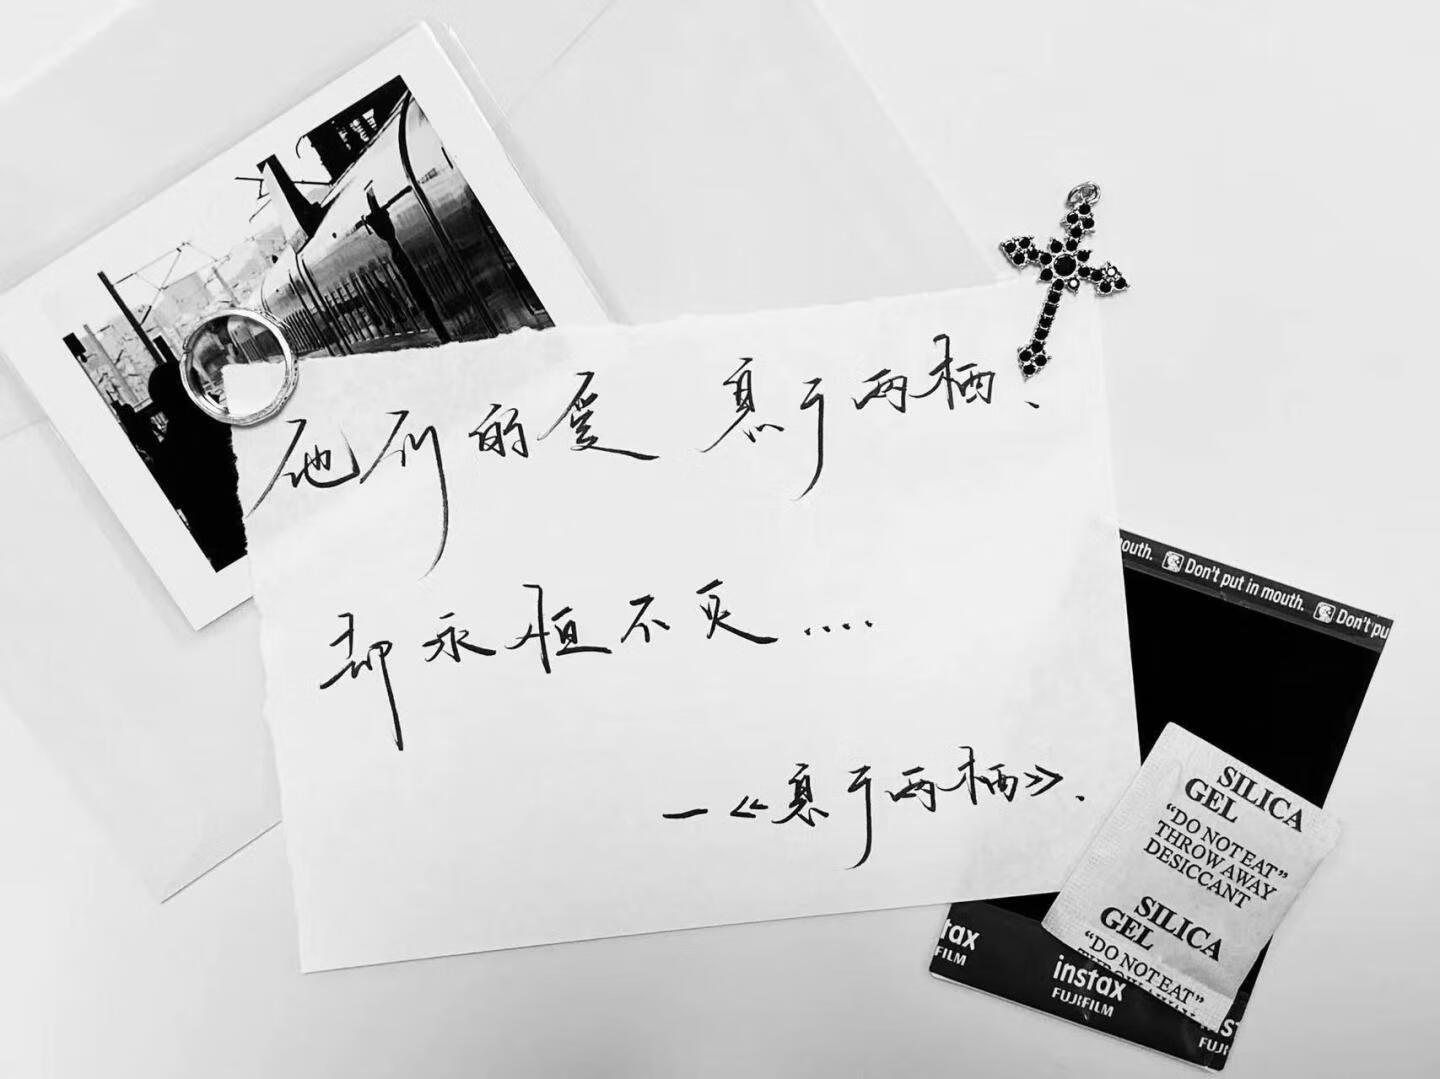 他们的爱 息于两栖.
却永恒不灭....
—《息于两栖》.
outh. Don't put in mouth. Don't pu
SILICA
GEL
“DO NOT EAT”
THROW AWAY
DESICCANT
SILICA
GEL
“DO NOT EAT”
tax
FILM
instax
FUJIFILM
FUJI